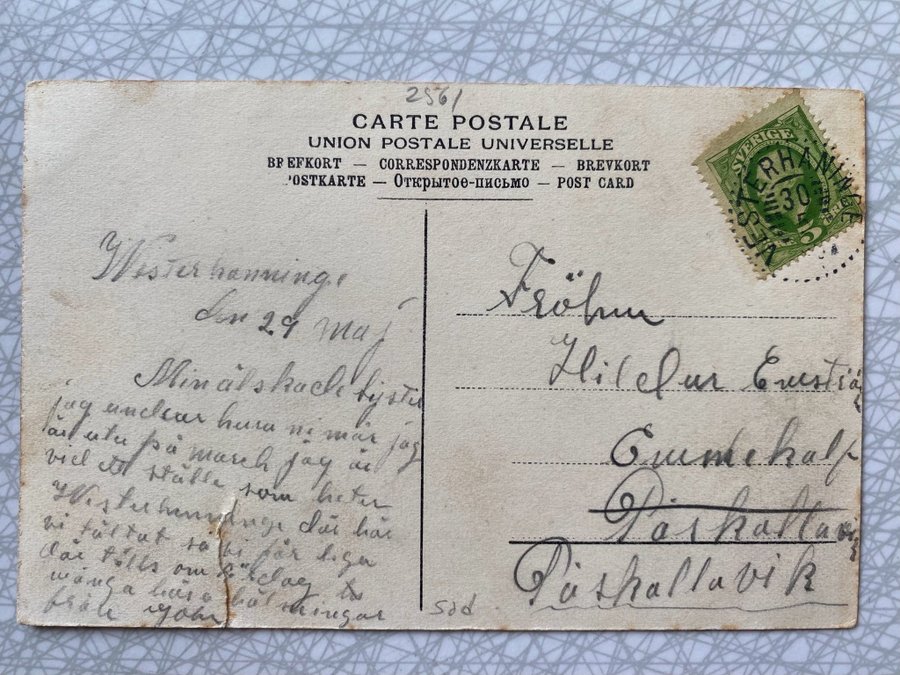 2561
CARTE POSTALE
UNION POSTALE UNIVERSELLE
BREFKORT — CORRESPONDENZKARTE — BREVKORT
POSTKARTE — Открытое-письмо — POST CARD
SVERIGE
5
VESTERHANINGE
30
Westerhanninge
den 29 maj
Min älskade syster
jag undear huru ni mår jag
är utu på march jag är
vid ett ställe som heter
Westerhanninge där har
vi tältat så vi får liga
där tills om
många kära hälsningar
från John
Fröken
Hildur
Emmekalp
Påskallavik
Påskallavik
söd